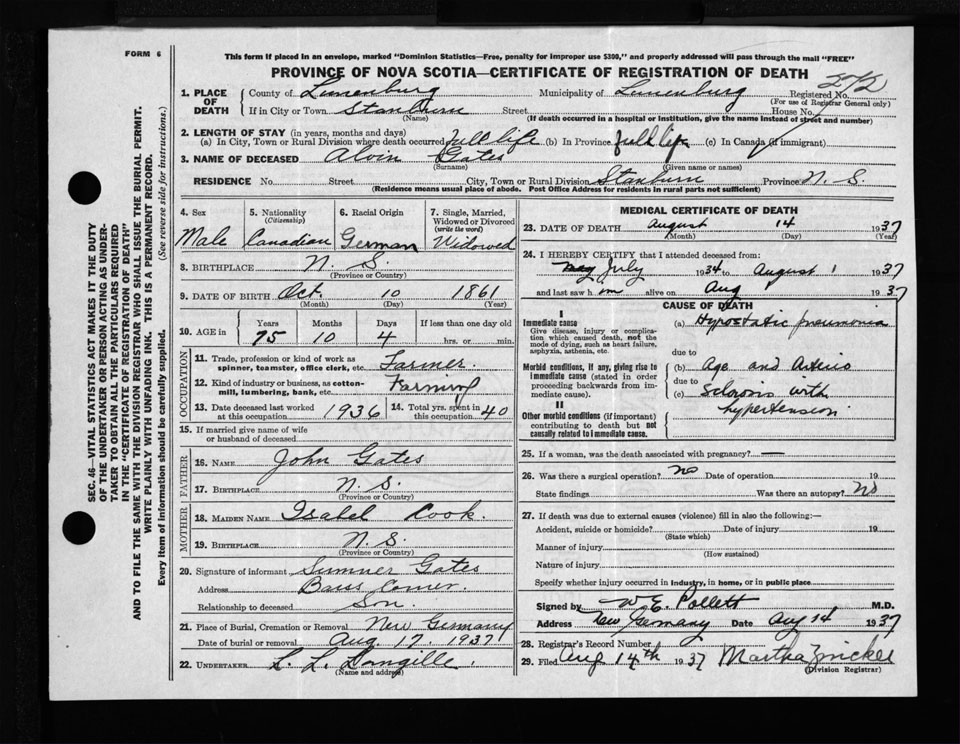 FORM 6
This form if placed in an envelope, marked "Dominion Statistics—Free, penalty for improper use $300," and properly addressed will pass through the mail "FREE"
PROVINCE OF NOVA SCOTIA—CERTIFICATE OF REGISTRATION OF DEATH
1. PLACE OF DEATH County of Lunenburg Municipality of Lunenburg Registered No.
(For use of Registrar General only)
If in City or Town Stanburn Street House No.
(Name) (If death occurred in a hospital or institution, give the name instead of street and number)
2. LENGTH OF STAY (in years, months and days)
(a) In City, Town or Rural Division where death occurred full life (b) In Province full life (c) In Canada (if immigrant)
3. NAME OF DECEASED Alvin Gates
(Surname) (Given name or names)
RESIDENCE No. Street City, Town or Rural Division Stanburn Province N. S.
(Residence means usual place of abode. Post Office Address for residents in rural parts not sufficient)
4. Sex 5. Nationality (Citizenship) 6. Racial Origin 7. Single, Married, Widowed or Divorced (write the word)
Male Canadian German Widowed
8. BIRTHPLACE N. S.
(Province or Country)
9. DATE OF BIRTH Oct. 10 1861
(Month) (Day) (Year)
10. AGE in Years Months Days If less than one day old
75 10 4 hrs. or min.
OCCUPATION
11. Trade, profession or kind of work as spinner, teamster, office clerk, etc. Farmer.
12. Kind of industry or business, as cotton-mill, lumbering, bank, etc. Farming
13. Date deceased last worked at this occupation 1936 14. Total yrs. spent in this occupation 40
15. If married give name of wife or husband of deceased
FATHER
16. NAME John Gates
17. BIRTHPLACE N. S.
(Province or Country)
MOTHER
18. MAIDEN NAME Isabel Cook.
19. BIRTHPLACE N. S.
(Province or Country)
20. Signature of informant Sumner Gates
Address Barss Corner
Relationship to deceased Son.
21. Place of Burial, Cremation or Removal New Germany
Date of burial or removal Aug. 17. 1937
22. UNDERTAKER L. L. Langille.
(Name and address)
MEDICAL CERTIFICATE OF DEATH
23. DATE OF DEATH August 14 1937
(Month) (Day) (Year)
24. I HEREBY CERTIFY that I attended deceased from:
July 1934 to August 1 1937
and last saw him alive on Aug 1937
CAUSE OF DEATH
I
Immediate cause
Give disease, injury or complication which caused death, not the mode of dying, such as heart failure, asphyxia, asthenia, etc.
(a) Hypostatic pneumonia
due to
Morbid conditions, if any, giving rise to immediate cause (stated in order proceeding backwards from immediate cause).
(b) Age and Arterio
due to
(c) Sclerosis with
hypertension
II
Other morbid conditions (if important) contributing to death but not causally related to immediate cause.
25. If a woman, was the death associated with pregnancy? —
26. Was there a surgical operation? no Date of operation 19
State findings Was there an autopsy? No
27. If death was due to external causes (violence) fill in also the following:—
Accident, suicide or homicide? Date of injury 19
(State which)
Manner of injury
(How sustained)
Nature of injury
Specify whether injury occurred in industry, in home, or in public place
Signed by W E. Pollett M.D.
Address New Germany Date Aug 14 1937
28. Registrar's Record Number
29. Filed Aug 14th 1937 Martha Zwicker
(Division Registrar)
SEC. 46—VITAL STATISTICS ACT MAKES IT THE DUTY
OF THE UNDERTAKER OR PERSON ACTING AS UNDER-
TAKER TO OBTAIN ALL THE PARTICULARS REQUIRED
IN THE "CERTIFICATE OF REGISTRATION OF DEATH"
AND TO FILE THE SAME WITH THE DIVISION REGISTRAR WHO SHALL ISSUE THE BURIAL PERMIT.
WRITE PLAINLY WITH UNFADING INK. THIS IS A PERMANENT RECORD.
Every item of information should be carefully supplied. (See reverse side for instructions.)